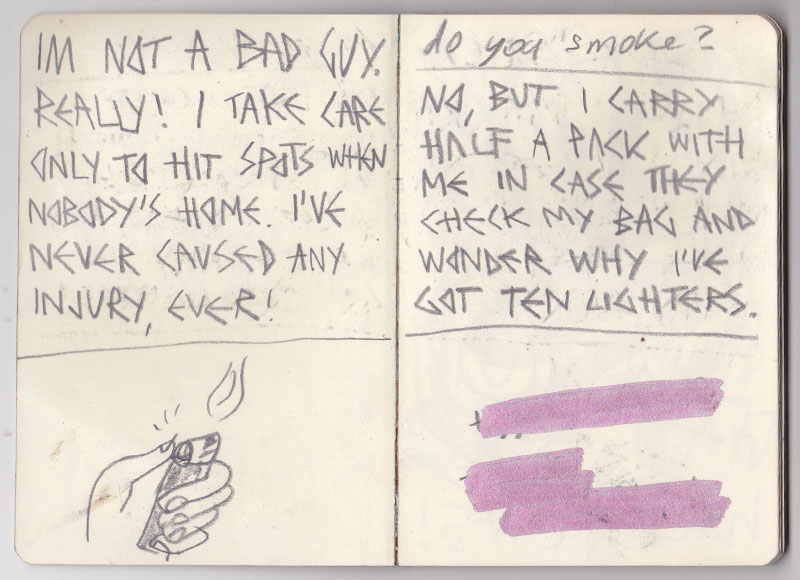 IM NOT A BAD GUY.
REALLY! I TAKE CARE
ONLY TO HIT SPOTS WHEN
NOBODY'S HOME. I'VE
NEVER CAUSED ANY
INJURY, EVER!
do you smoke?
NO, BUT I CARRY
HALF A PACK WITH
ME IN CASE THEY
CHECK MY BAG AND
WONDER WHY I'VE
GOT TEN LIGHTERS.